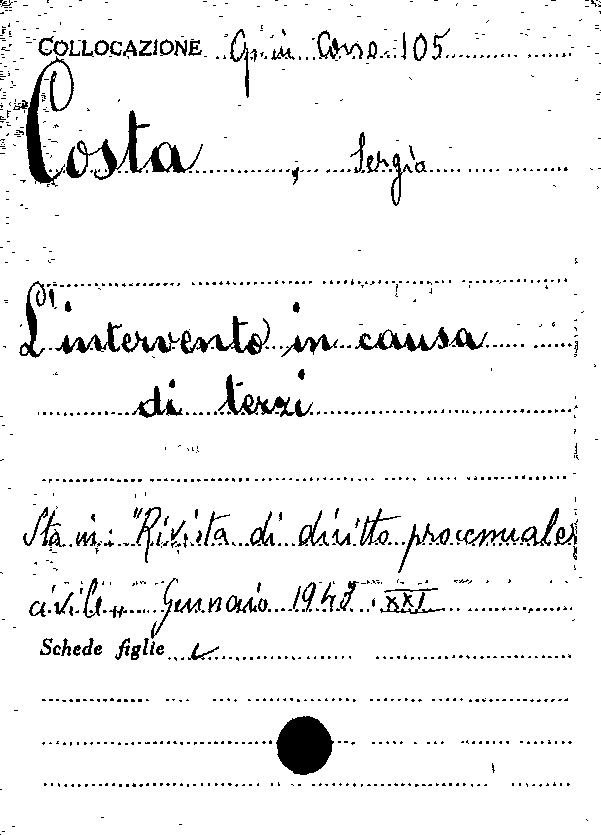 COLLOCAZIONE Op. in Cons. 105
Costa, Sergio
L'intervento in causa
di terzi
Sta in: "Rivista di diritto processuale
civile" Gennaio 1943 XXI
Schede figlie